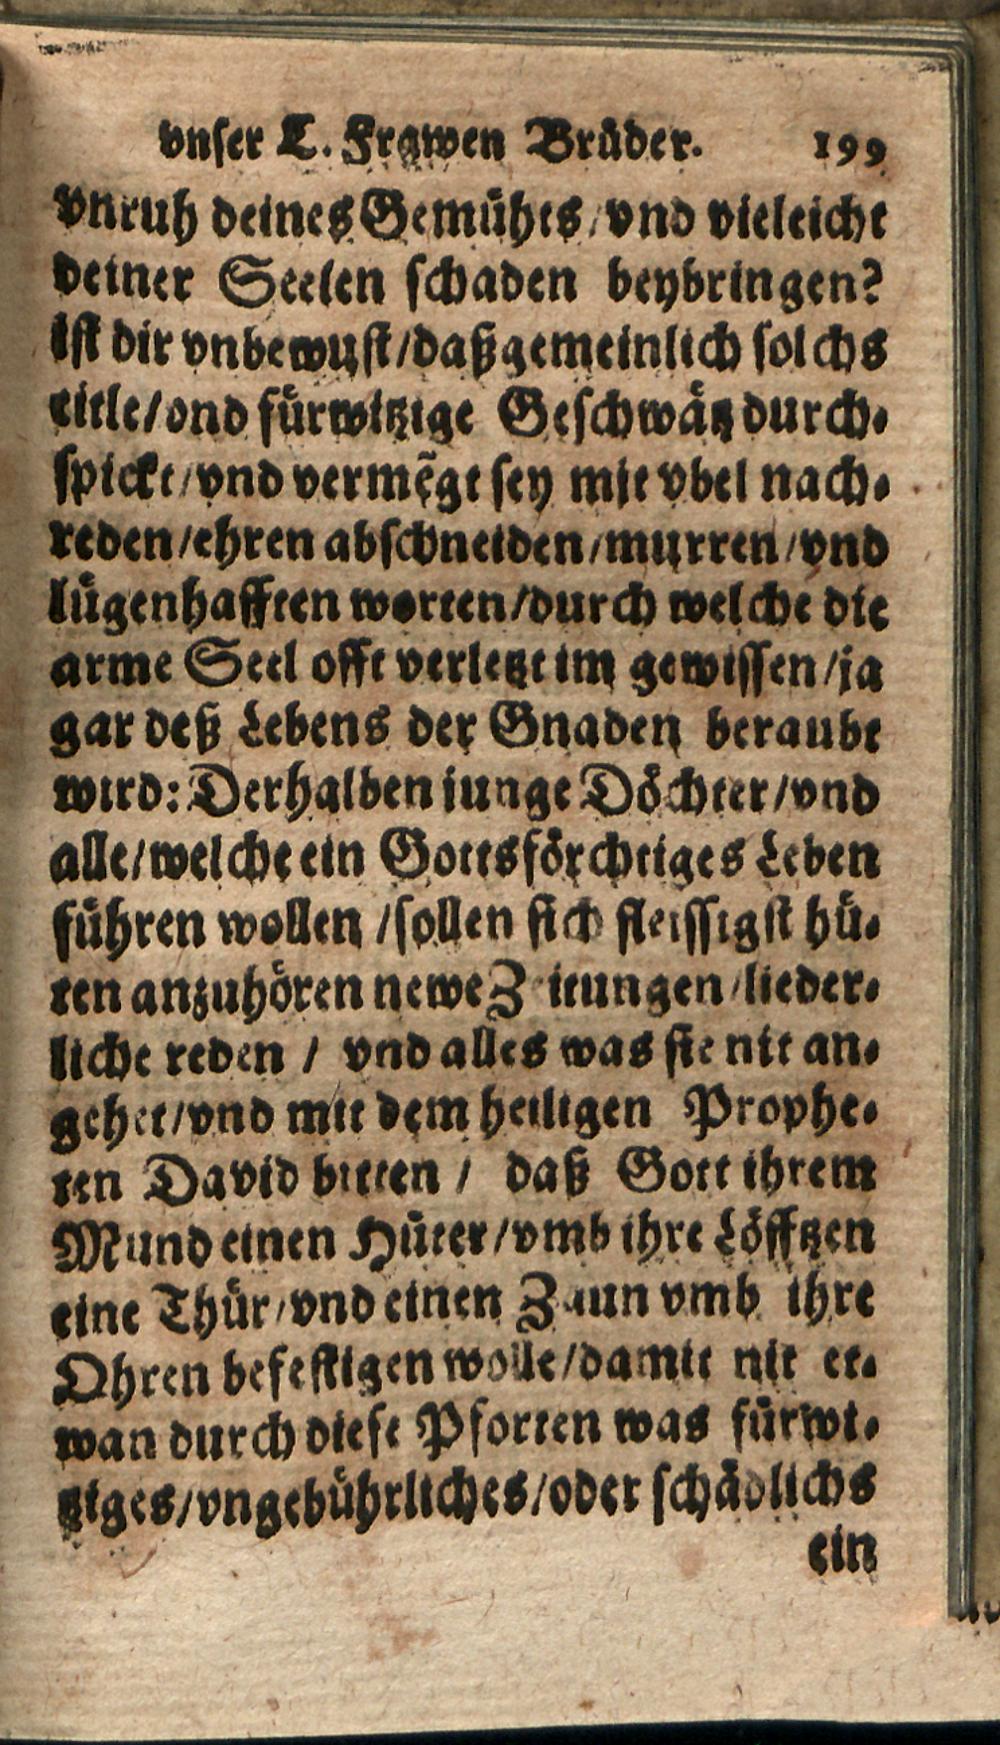 vnser L. Frawen Brüder. 199
vnruh deines Gemühts/vnd vieleicht
deiner Seelen schaden beybringen?
Ist dir vnbewust/daß gemeinlich solchs
eitle/vnd fürwitzige Geschwätz durch-
spickt/vnd vermẽgt sey mit vbel nach-
reden/ehren abschneiden/murren/vnd
lügenhafften worten/durch welche die
arme Seel offt verletzt im gewissen/ja
gar deß Lebens der Gnaden beraubt
wird: Derhalben junge Döchter/vnd
alle/welche ein Gottsförchtiges Leben
führen wollen/sollen sich fleissigst hü-
ten anzuhören newe Zeitungen/lieder-
liche reden/ vnd alles was sie nit an-
gehet/vnd mit dem heiligen Prophe-
ten David bitten/ daß Gott ihrem
Mund einen Hüter/vmb ihre Löfftzen
eine Thür/vnd einen Zaun vmb ihre
Ohren befestigen wolle/damit nit et-
wan durch diese Pforten was fürwi-
tziges/vngebührliches/oder schädlichs
ein